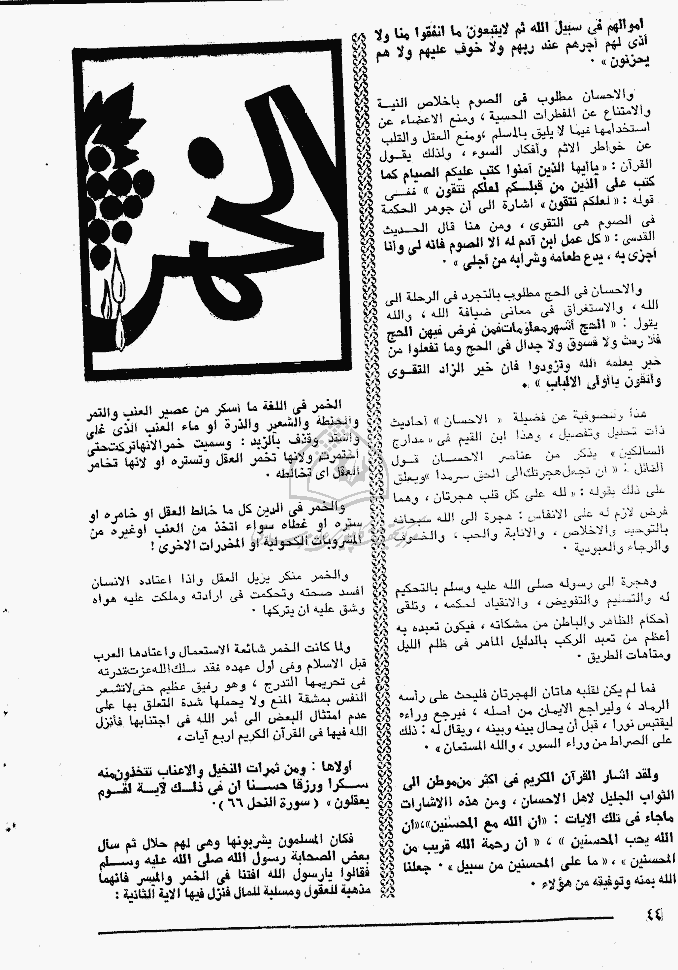 أموالهم فى سبيل الله ثم لايتبعون ما انفقوا منا ولا
أذى لهم أجرهم عند ربهم ولا خوف عليهم ولا هم
يحزنون » ٠
والاحسان مطلوب فى الصوم باخلاص النيـة
والامتناع عن المفطرات الحسية ، ومنع الاعضاء عن
استخدامها فيما لا يليق بالمسلم ،ومنع العقل والقلب
عن خواطر الاثم وأفكار السوء ، ولذلك يقـول
القرآن : « ياأيها الذين آمنوا كتب عليكم الصيام كما
كتب على الذين من قبلـكم لعلكم تتقون » ففـى
قوله : « لعلكم تتقون » اشارة الى أن جوهر الحكمة
فى الصوم هى التقوى ، ومن هنا قال الحـديث
القدسى : « كل عمل ابن آدم له الا الصوم فانه لى وأنا
أجزى به ، يدع طعامه وشرابه من أجلى » ٠
والاحسان فى الحج مطلوب بالتجرد فى الرحلة الى
الله ، والاستغراق فى معانى ضيافة الله ، والله
يقول : « الحج أشهر معلومات فمن فرض فيهن الحج
فلا رفث ولا فسوق ولا جدال فى الحج وما تفعلوا من
خير يعلمه الله وتزودوا فان خير الزاد التقـوى
واتقون ياأولى الالباب » ٠
هذا وللصوفية عن فضيلة « الاحسان » أحاديث
ذات تحليل وتفصيل ، وهذا ابن القيم فى « مدارج
السالكين» يذكر من عناصر الاحســان قـول
القائل : « ان تجعل هجرتك الى الحق سرمدا » ويعلق
على ذلك بقوله : « لله على كل قلب هجرتان ، وهما
فرض لازم له على الانفاس : هجرة الى الله سبحانه
بالتوحيد والاخلاص ، والانابة والحب ، والخـوف
والرجاء والعبودية ٠
وهجرة الى رسوله صلى الله عليه وسلم بالتحكيم
له والتسليم والتفويض ، والانقياد لحكمه ، وتلقى
أحكام الظاهر والباطن من مشكاته ، فيكون تعبده به
أعظم من تعبد الركب بالدليل الماهر فى ظلم الليل
ومتاهات الطريق ٠
فما لم يكن لقلبه هاتان الهجرتان فليحث على رأسه
الرماد ، وليراجع الايمان من أصله ، فيرجع وراءه
ليقتبس نورا ، قبل أن يحال بينه وبينه ، ويقال له : ذلك
على الصراط من وراء السور ، والله المستعان » ٠
ولقد أشار القرآن الكريم فى أكثر من موطن الى
الثواب الجليل لاهل الاحسان ، ومن هذه الاشارات
ماجاء فى تلك الآيات : « ان الله مع المحسنين»،«ان
الله يحب المحسنين » ، « ان رحمة الله قريب من
المحسنين » ، « ما على المحسنين من سبيل » ٠ جعلنا
الله بمنه وتوفيقه من هؤلاء ٠
الخمر
الخمر فى اللغة ما أسكر من عصير العنب والتمر
والحنطة والشعير والذرة أو ماء العنب الذى غلى
واشتد وقذف بالزبد : وسميت خمرا لانها تركت حتى
اختمرت ولانها تخمر العقل وتستره أو لانها تخامر
العقل أى تخالطه ٠
والخمر فى الدين كل ما خالط العقل أو خامره أو
ستره أو غطاه سواء اتخذ من العنب أو غيره من
المشروبات الكحولية أو المخدرات الاخرى !
والخمر منكر يزيل العقل واذا اعتاده الانسان
أفسد صحته وتحكمت فى ارادته وملكت عليه هواه
وشق عليه ان يتركها ٠
ولما كانت الخمر شائعة الاستعمال واعتادها العرب
قبل الاسلام وفى أول عهده فقد سلك الله عزت قدرته
فى تحريمها التدرج ، وهو رفيق عظيم حتى لاتشعر
النفس بمشقة المنع ولا يحملها شدة التعلق بها على
عدم امتثال البعض الى أمر الله فى اجتنابها فأنزل
الله فيها فى القرآن الكريم أربع آيات ،
أولاها : ومن ثمرات النخيل والاعناب تتخذون منه
سـكرا ورزقا حسـنا ان فى ذلـك لآيـة لقـوم
يعقلون » ( سورة النحل ٦٦ )٠
فكان المسلمون يشربونها وهى لهم حلال ثم سأل
بعض الصحابة رسول الله صلى الله عليه وسـلم
فقالوا يارسول الله افتنا فى الخمر والميسر فانهما
مذهبة للعقول ومسلبة للمال فنزل فيها الآية الثانية :
٤٤